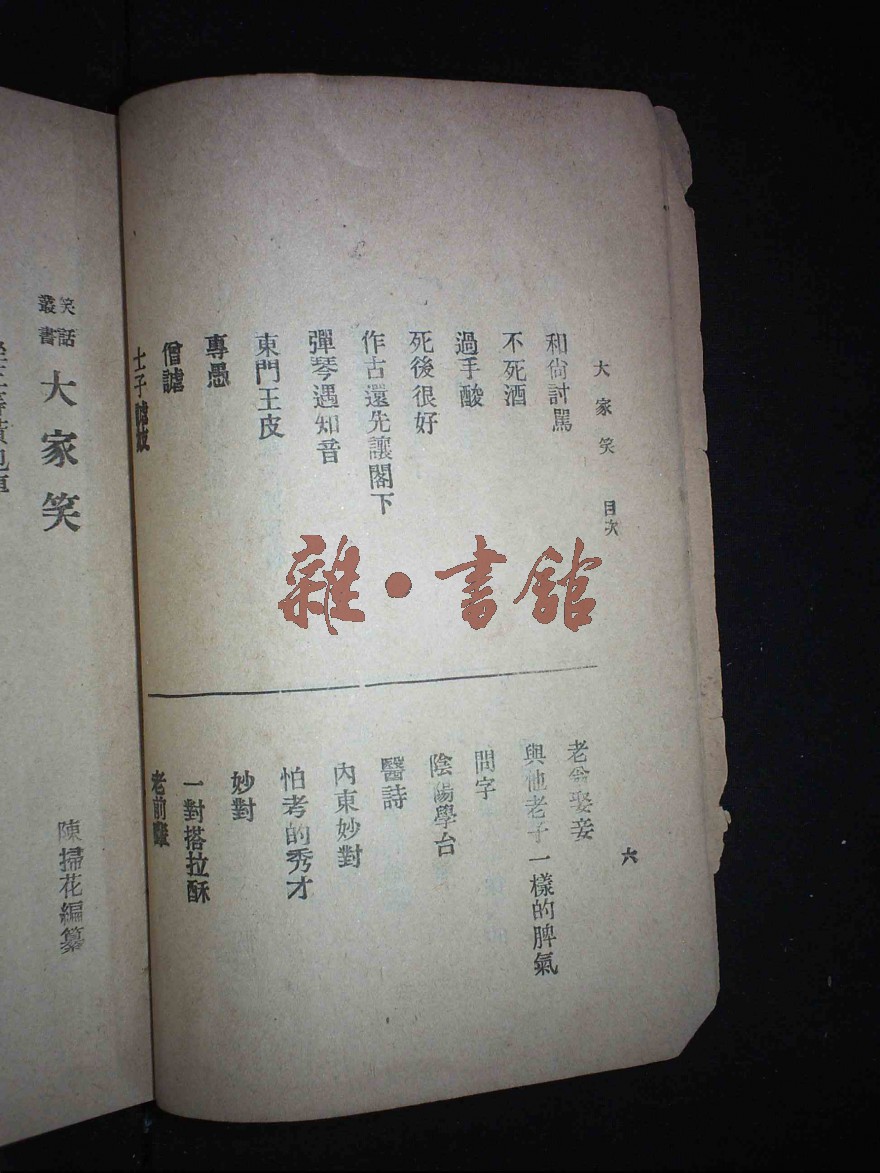 大家笑 目次
六
和尙討罵
不死酒
過手酸
死後很好
作古還先讓閣下
彈琴遇知音
東門王皮
專愚
僧謔
士子
老翁娶妾
與他老子一樣的脾氣
問字
陰陽學台
醫詩
內東妙對
怕考的秀才
妙對
一對搭拉酥
老前輩
笑話
叢書
大家笑
陳掃花編纂
雜•書館